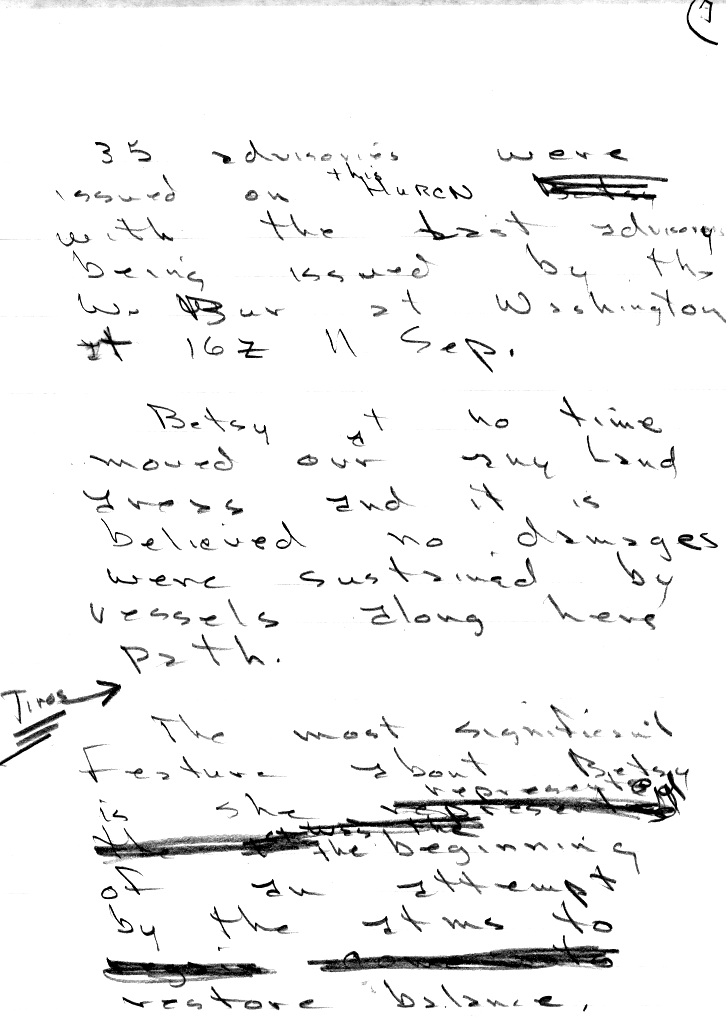 35 advisories were
issued on this HURCN
with the last advisory
being issued by the
W. Bur at Washington
at 16Z 11 Sep.
Betsy at no time
moved our any Land
areas and it is
believed no damages
were sustained by
vessels along here
path.
Tiros
The most significant
Feature about Betsy
is she represented
the beginning
of an attempt
by the atms to
restore balance.